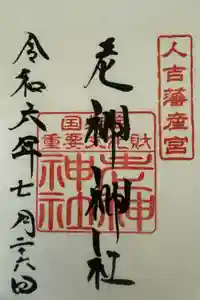 人吉藩産宮
老神神社
国重要文化財
老神
神社
令和六年七月二六日